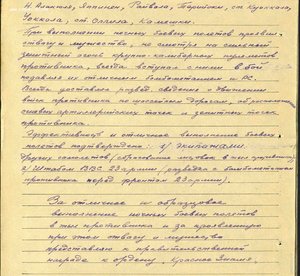 Н. Алакюля, Яппинен, Райвала, Териоки, ст. Куоккала,
Уоккола, ст. Оллила, Камешки.
При выполнении ночных боевых полетов проявил
отвагу и мужество, не смотря на сильный
зенитный огонь крупно калиберных пулеметов
противника, всегда вступал с ними в бой
подавляя их отличным бомбометанием и РС.
Всегда доставлял развед. сведения о движении
войск противника по шоссейным дорогам, об расположении
своих артиллерийских точек и зенитных точек
противника.
Эффективность и отличное выполнение боевых
полетов подтверждено: 1/ Экипажами
других самолетов /сбрасывание листовок в тыл противника/
2/ Штабом ВВС 23 армии /разведка с бомбометанием
противника перед фронтом 23 армии/.
За отличное и образцовое
выполнение ночных боевых полетов
в тыл противника и за проявленную
при этом отвагу и мужество
представляю к правительственной
награде к ордену "Красное Знамя".